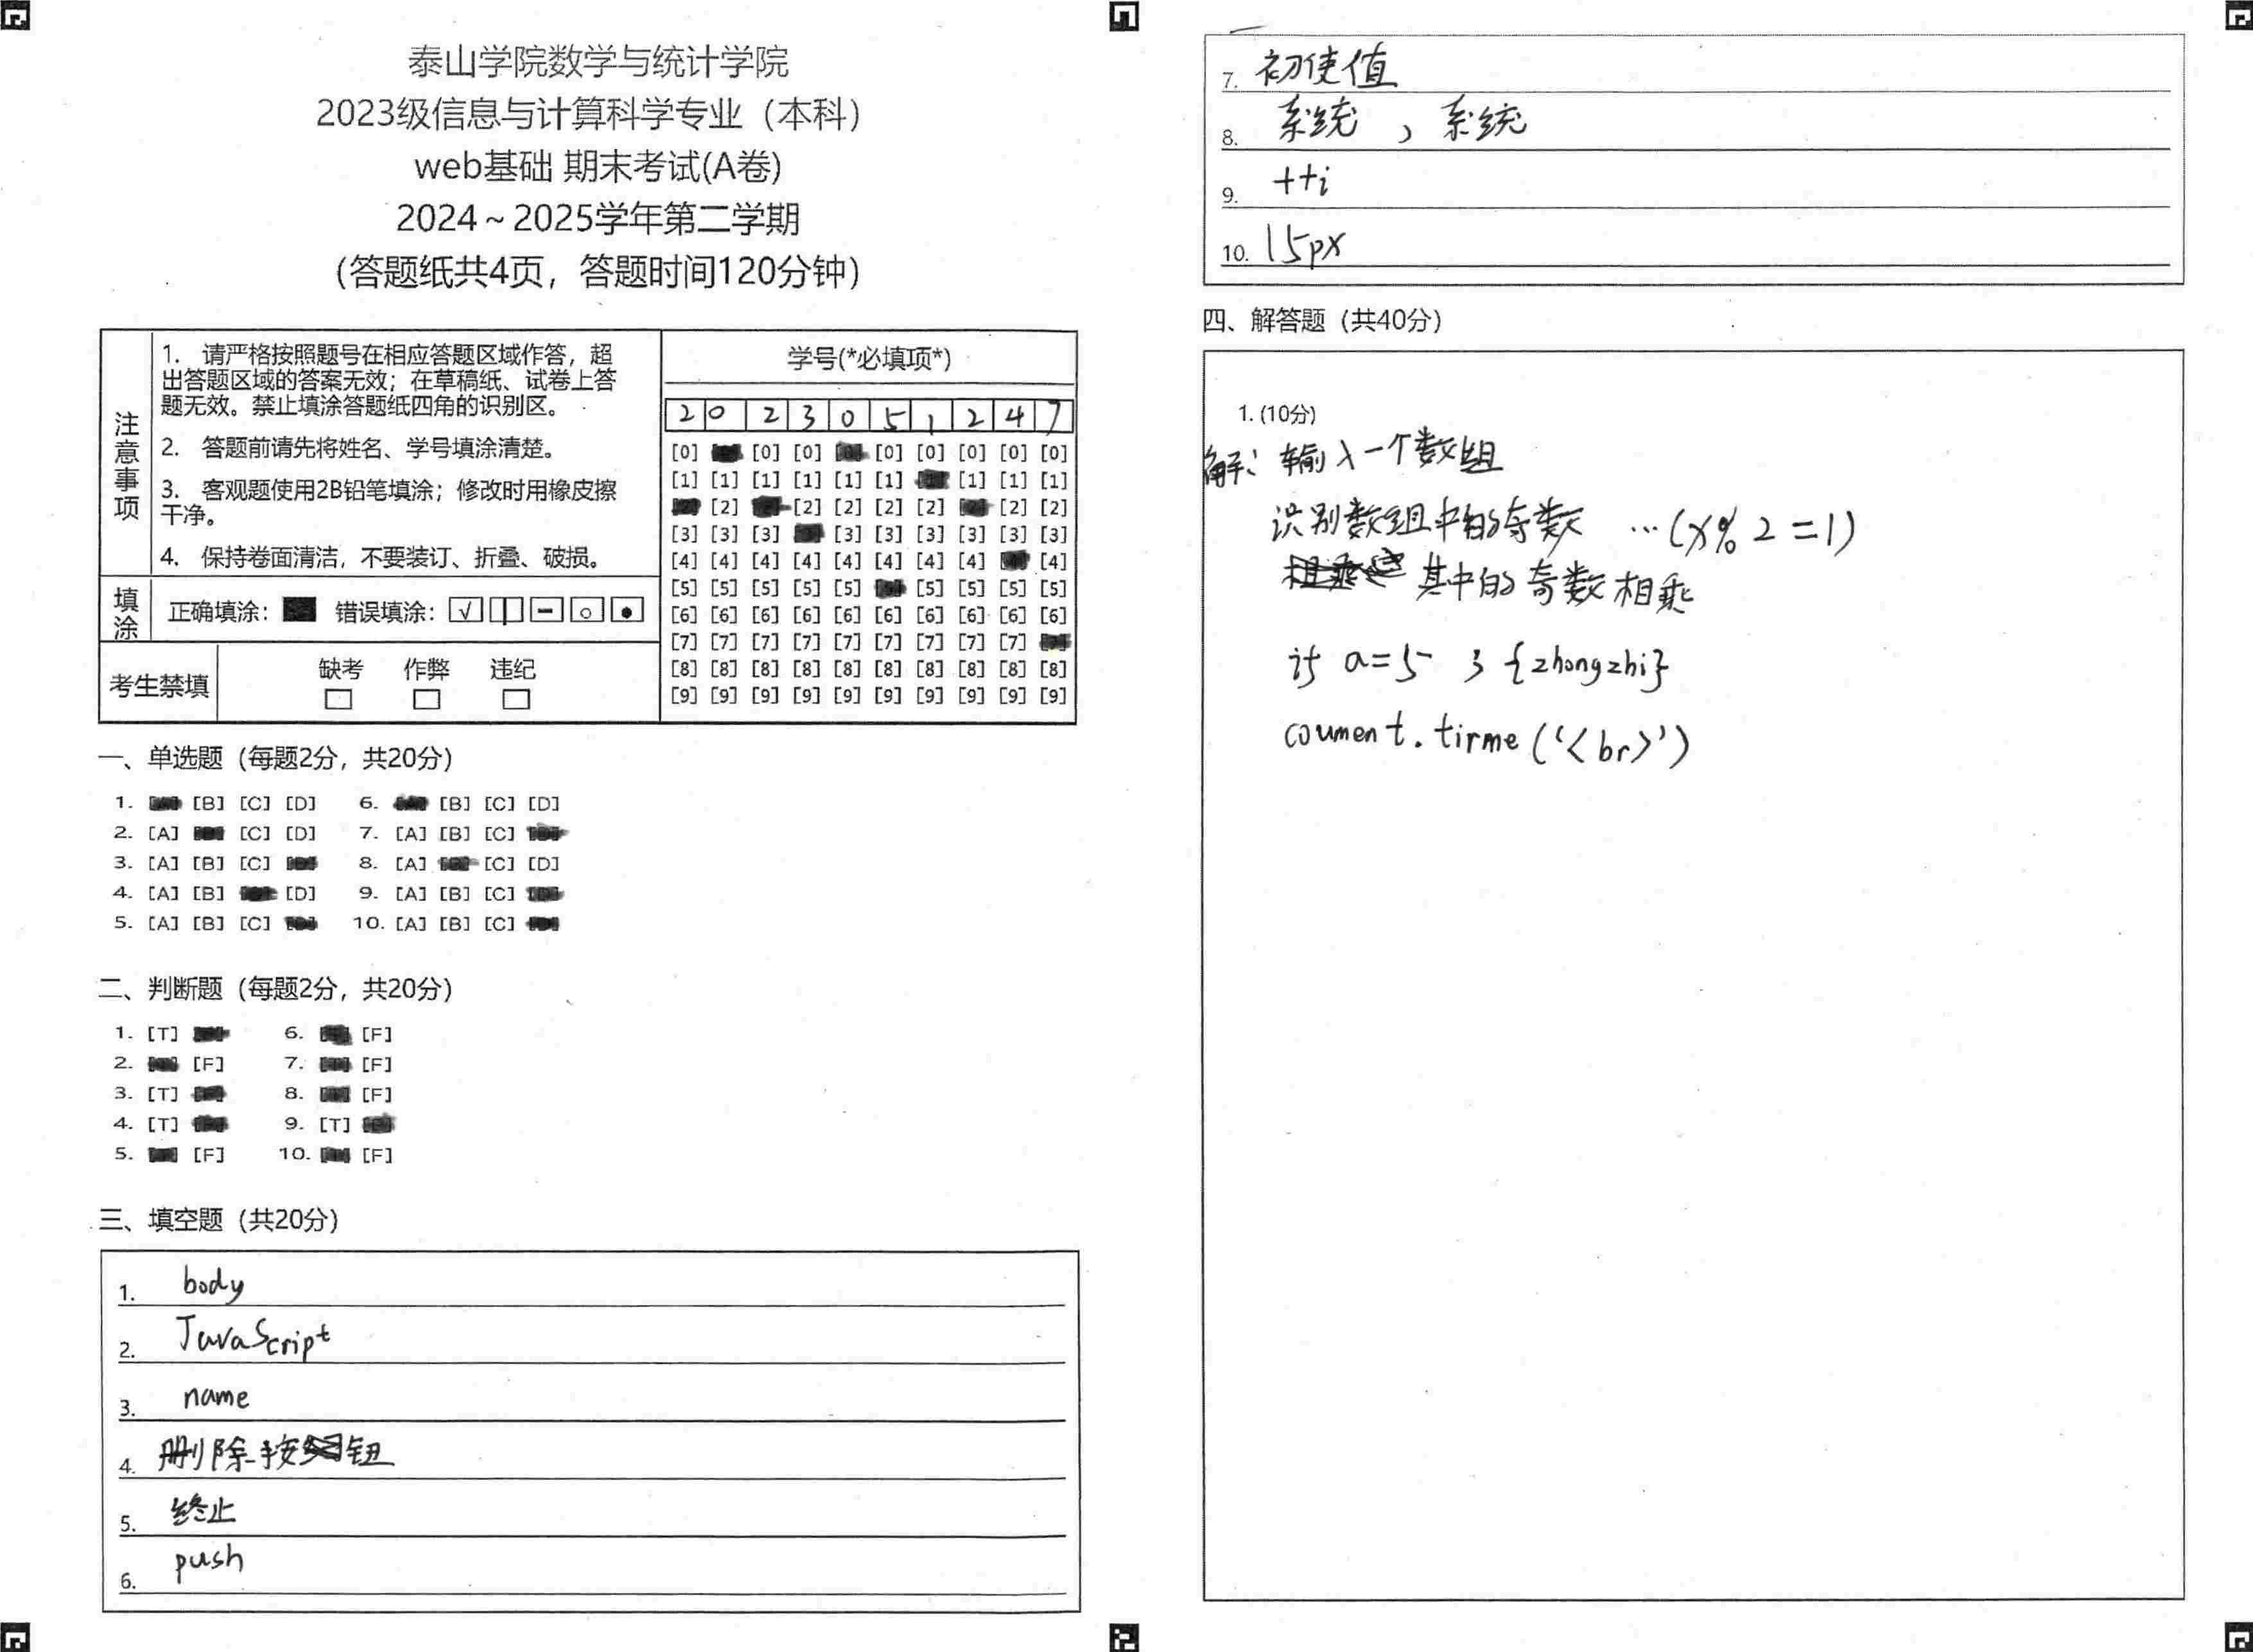 泰山学院数学与统计学院
2023级信息与计算科学专业（本科）
web基础 期末考试(A卷)
2024～2025学年第二学期
（答题纸共4页，答题时间120分钟）
注意事项
1. 请严格按照题号在相应答题区域作答，超
出答题区域的答案无效；在草稿纸、试卷上答
题无效。禁止填涂答题纸四角的识别区。
2. 答题前请先将姓名、学号填涂清楚。
3. 客观题使用2B铅笔填涂；修改时用橡皮擦
干净。
4. 保持卷面清洁，不要装订、折叠、破损。
填涂 正确填涂： 错误填涂：
考生禁填 缺考 作弊 违纪
学号(*必填项*)
2 0 2 3 0 5 1 2 4 7
[0] [0] [0] [0] [0] [0] [0] [0]
[1] [1] [1] [1] [1] [1] [1] [1] [1]
[2] [2] [2] [2] [2] [2] [2]
[3] [3] [3] [3] [3] [3] [3] [3] [3]
[4] [4] [4] [4] [4] [4] [4] [4] [4]
[5] [5] [5] [5] [5] [5] [5] [5] [5]
[6] [6] [6] [6] [6] [6] [6] [6] [6] [6]
[7] [7] [7] [7] [7] [7] [7] [7] [7]
[8] [8] [8] [8] [8] [8] [8] [8] [8] [8]
[9] [9] [9] [9] [9] [9] [9] [9] [9] [9]
一、单选题（每题2分，共20分）
1. [B] [C] [D] 6. [B] [C] [D]
2. [A] [C] [D] 7. [A] [B] [C]
3. [A] [B] [C] 8. [A] [C] [D]
4. [A] [B] [D] 9. [A] [B] [C]
5. [A] [B] [C] 10. [A] [B] [C]
二、判断题（每题2分，共20分）
1. [T] 6. [F]
2. [F] 7. [F]
3. [T] 8. [F]
4. [T] 9. [T]
5. [F] 10. [F]
三、填空题（共20分）
1. body
2. JavaScript
3. name
4. 删除按钮
5. 终止
6. push
7. 初使值
8. 系统 ，系统
9. ++i
10. 15px
四、解答题（共40分）
1. (10分)
解：输入一个数组
识别数组中的奇数 …(x% 2 =1)
其中的奇数相乘
if a=5 3 {zhongzhi}
coument.tirme('<br>')